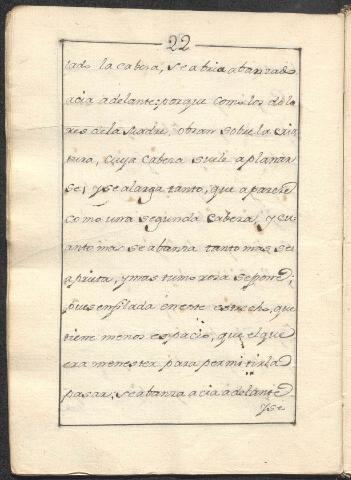 22
tado la cabeza, se abia abanzado
acia adelante: porque como los dolo
res de la Madre, obran sobre la cria
tura, cuya cabeza suele aplanar
se; y se alarga tanto, que aparece
como una segunda cabeza, y cu
anto mas se abanza tanto mas se
aprieta, y mas tumorosa se pone;
pues enfilada en este estrecho, que
tiene menos espacio, que el que
era menester para permitirla
pasar; se abanza acia adelante
y se